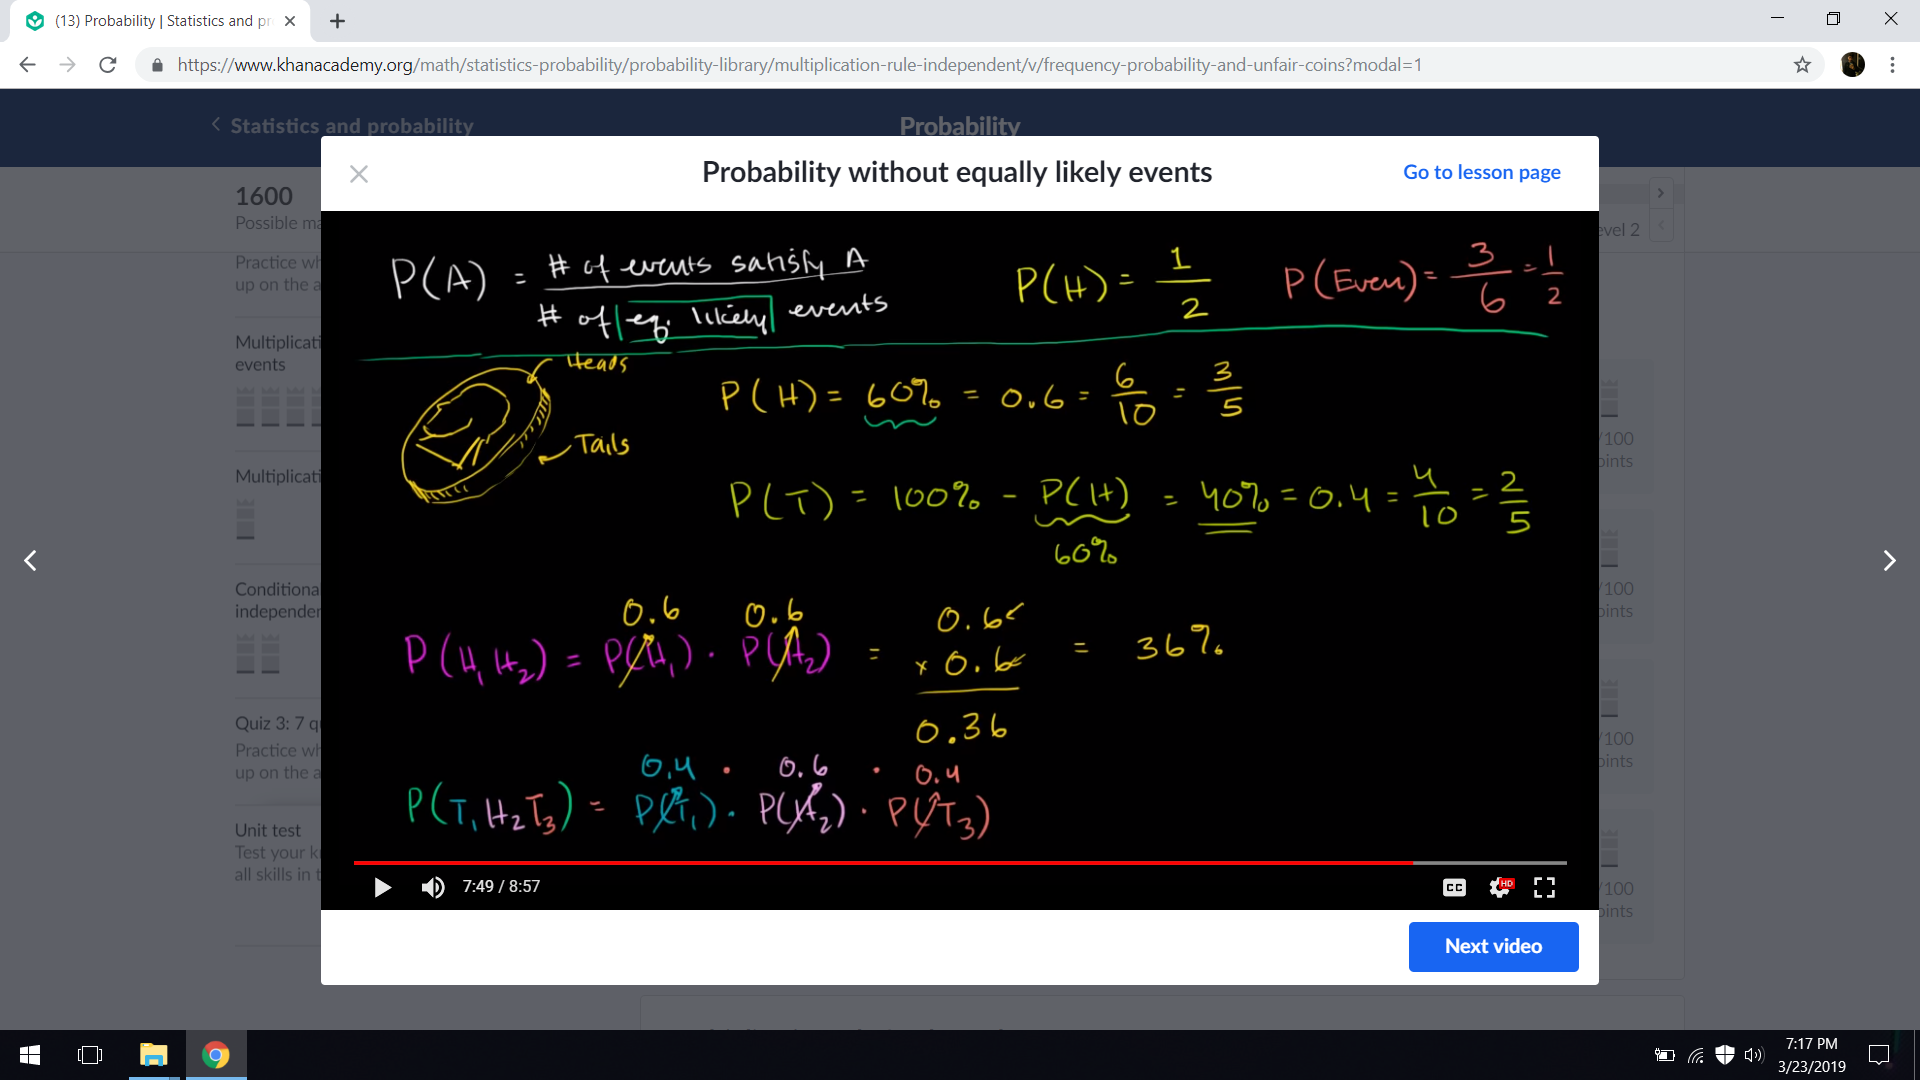 (13) Probability | Statistics and pr
https://www.khanacademy.org/math/statistics-probability/probability-library/multiplication-rule-independent/v/frequency-probability-and-unfair-coins?modal=1
Statistics and probability
Probability
1600
Possible ma
evel 2
Practice wh
up on the a
Multiplicati
events
Multiplicati
Conditiona
independen
Quiz 3: 7 qu
Practice wh
up on the a
Unit test
Test your kn
all skills in t
/100
oints
/100
oints
/100
oints
/100
oints
Probability without equally likely events
Go to lesson page
P(A) = # of events satisfy A / # of eq. likely events
P(H) = 1/2
P(Even) = 3/6 = 1/2
Heads
Tails
P(H) = 60% = 0.6 = 6/10 = 3/5
P(T) = 100% - P(H) = 40% = 0.4 = 4/10 = 2/5
60%
0.6 0.6
P(H₁H₂) = P(H₁) · P(H₂) = 0.6 × 0.6 = 36%
0.36
0.4 · 0.6 · 0.4
P(T₁H₂T₃) = P(T₁) · P(H₂) · P(T₃)
7:49 / 8:57
CC
HD
Next video
7:17 PM
3/23/2019